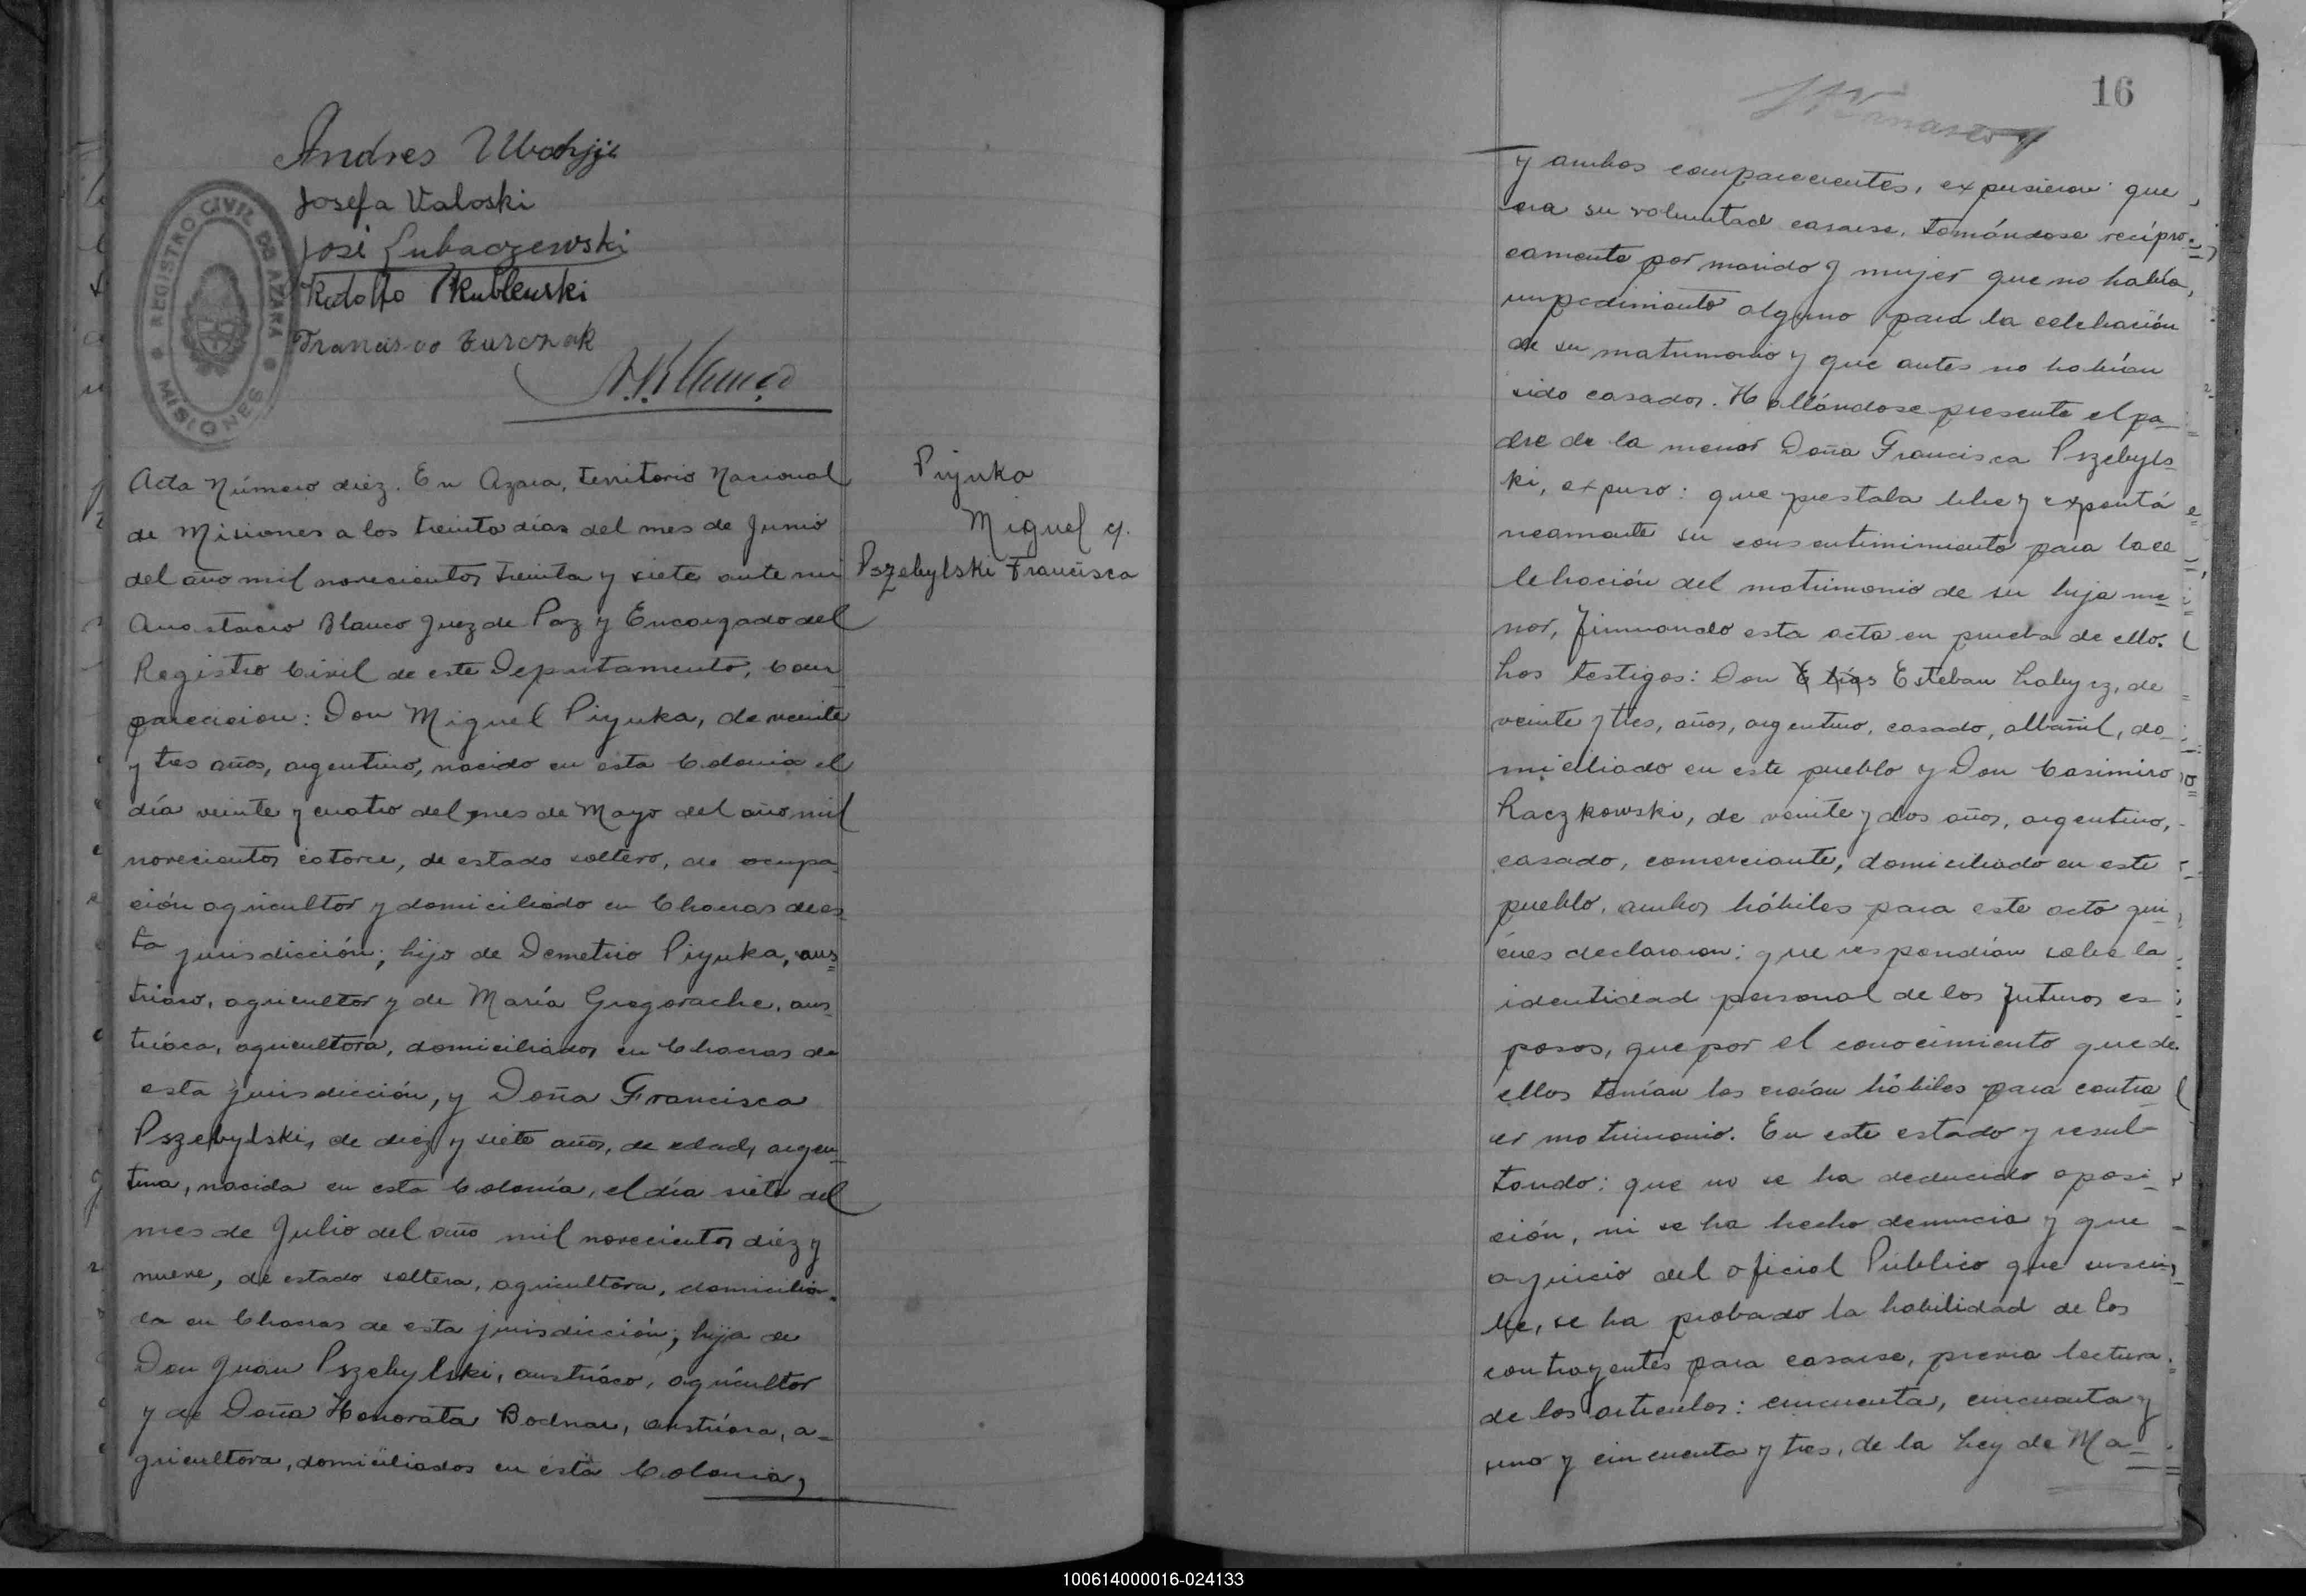 Andres
Josefa Valoski
José Lubaczewski
Rodolfo Kublewski
Francisco
REGISTRO CIVIL DE AZARA
MISIONES
Acta Número diéz. En Azara, territorio Nacional
de Misiones a los treinta días del mes de Junio
del año mil novecientos treinta y siete ante mi
Anastacio Blanco Juez de Paz y Encargado del
Registro Civil de este Departamento, Com
parecieron: Don Miguel Piyuka, de veinte
y tres años, argentino, nacido en esta Colonia el
día veinte y cuatro del mes de Mayo del año mil
novecientos catorce, de estado soltero, de ocupa
ción agricultor y domiciliado en Chacras de es
ta jurisdicción; hijo de Demetrio Piyuka, aus
triáco, agricultor y de María Gregorache, aus
triáca, agricultora, domiciliados en Chacras de
esta jurisdicción, y Doña Francisca
Pszebylski, de diéz y siete años, de edad, argen
tina, nacida en esta Colonia, el día siete del
mes de Julio del año mil novecientos diéz y
nueve, de estado soltera, agricultora, domicilia
da en Chacras de esta jurisdicción; hija de
Don Juan Pszebylski, austriáco, agricultor
y de Doña Honorata Bodnar, austriáca, a-
gricultora, domiciliados en esta Colonia,
Piyuka
Miguel y.
Pszebylski Francisca
16
y ambos comparecientes, expusieron: que
era su voluntad casarse, tomándose recípro
camente por marido y mujer que no había
impedimento alguno para la celebración
de su matrimonio y que antes no habían
sido casados. Hallándose presente el pa
dre de la menor Doña Francisca Pszebyls
ki, expuso: que prestaba libre y expontá
neamente su consentimimiento para la ce
lebración del matrimonio de su hija me
nor, firmando esta acta en prueba de ello.
Los testigos: Don Elías Esteban Labyrz, de
veinte y tres, años, argentino, casado, albañil, do
miciliado en este pueblo y Don Casimiro
Raczkowski, de veinte y dos años, argentino,
casado, comerciante, domiciliado en este
pueblo, ambos hábiles para este acto qui
énes declararon: que respondían sobre la
identidad personal de los futuros es
posos, que por el conocimiento que de
ellos tenían los creían hábiles para contra
er matrimonio. En este estado y resul-
tando: que no se ha deducido oposi
ción, ni se ha hecho denuncia y que
a juicio del oficial Público que suscri
be, se ha probado la habilidad de los
contrayentes para casarse, previa lectura
de los artículos: cincuenta, cincuenta y
uno y cincuenta y tres, de la Ley de Ma
100614000016-024133